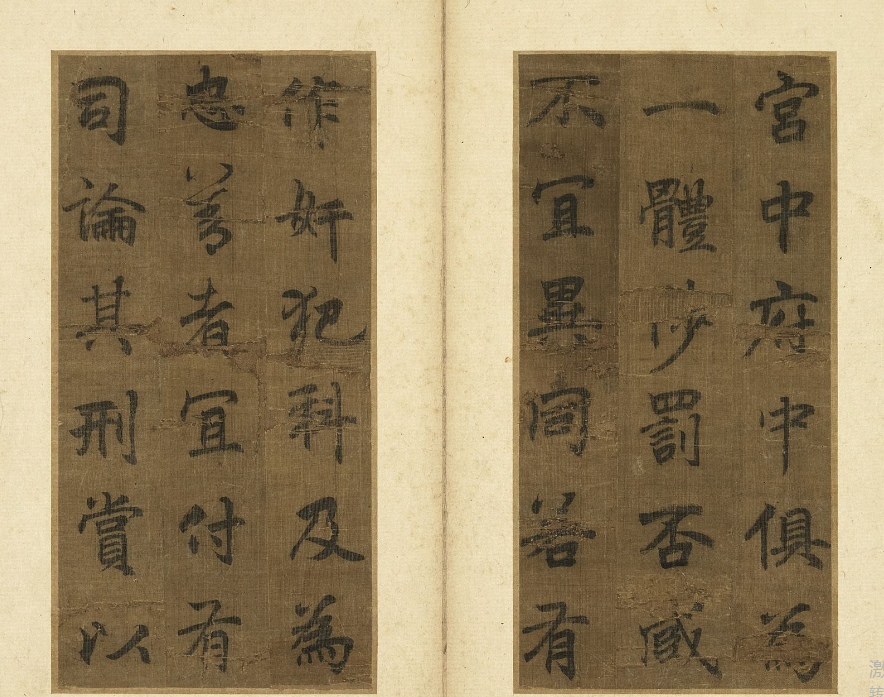 宮中府中俱為
一體陟罰否臧
不宜異同若有
作奸犯科及為
忠善者宜付有
司論其刑賞以